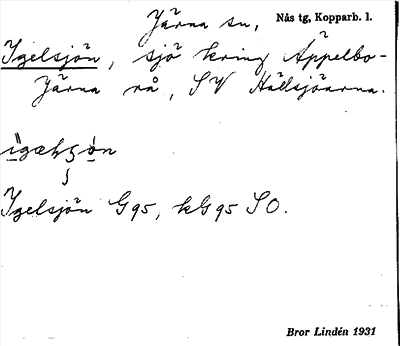 Järna sn, Nås tg, Kopparb. l.
Igelsjön, sjö kring Äppelbo-
Järna rå, SV Hållsjöarna.
Igelsjön G 95, kG 95 SO.
Bror Lindén 1931